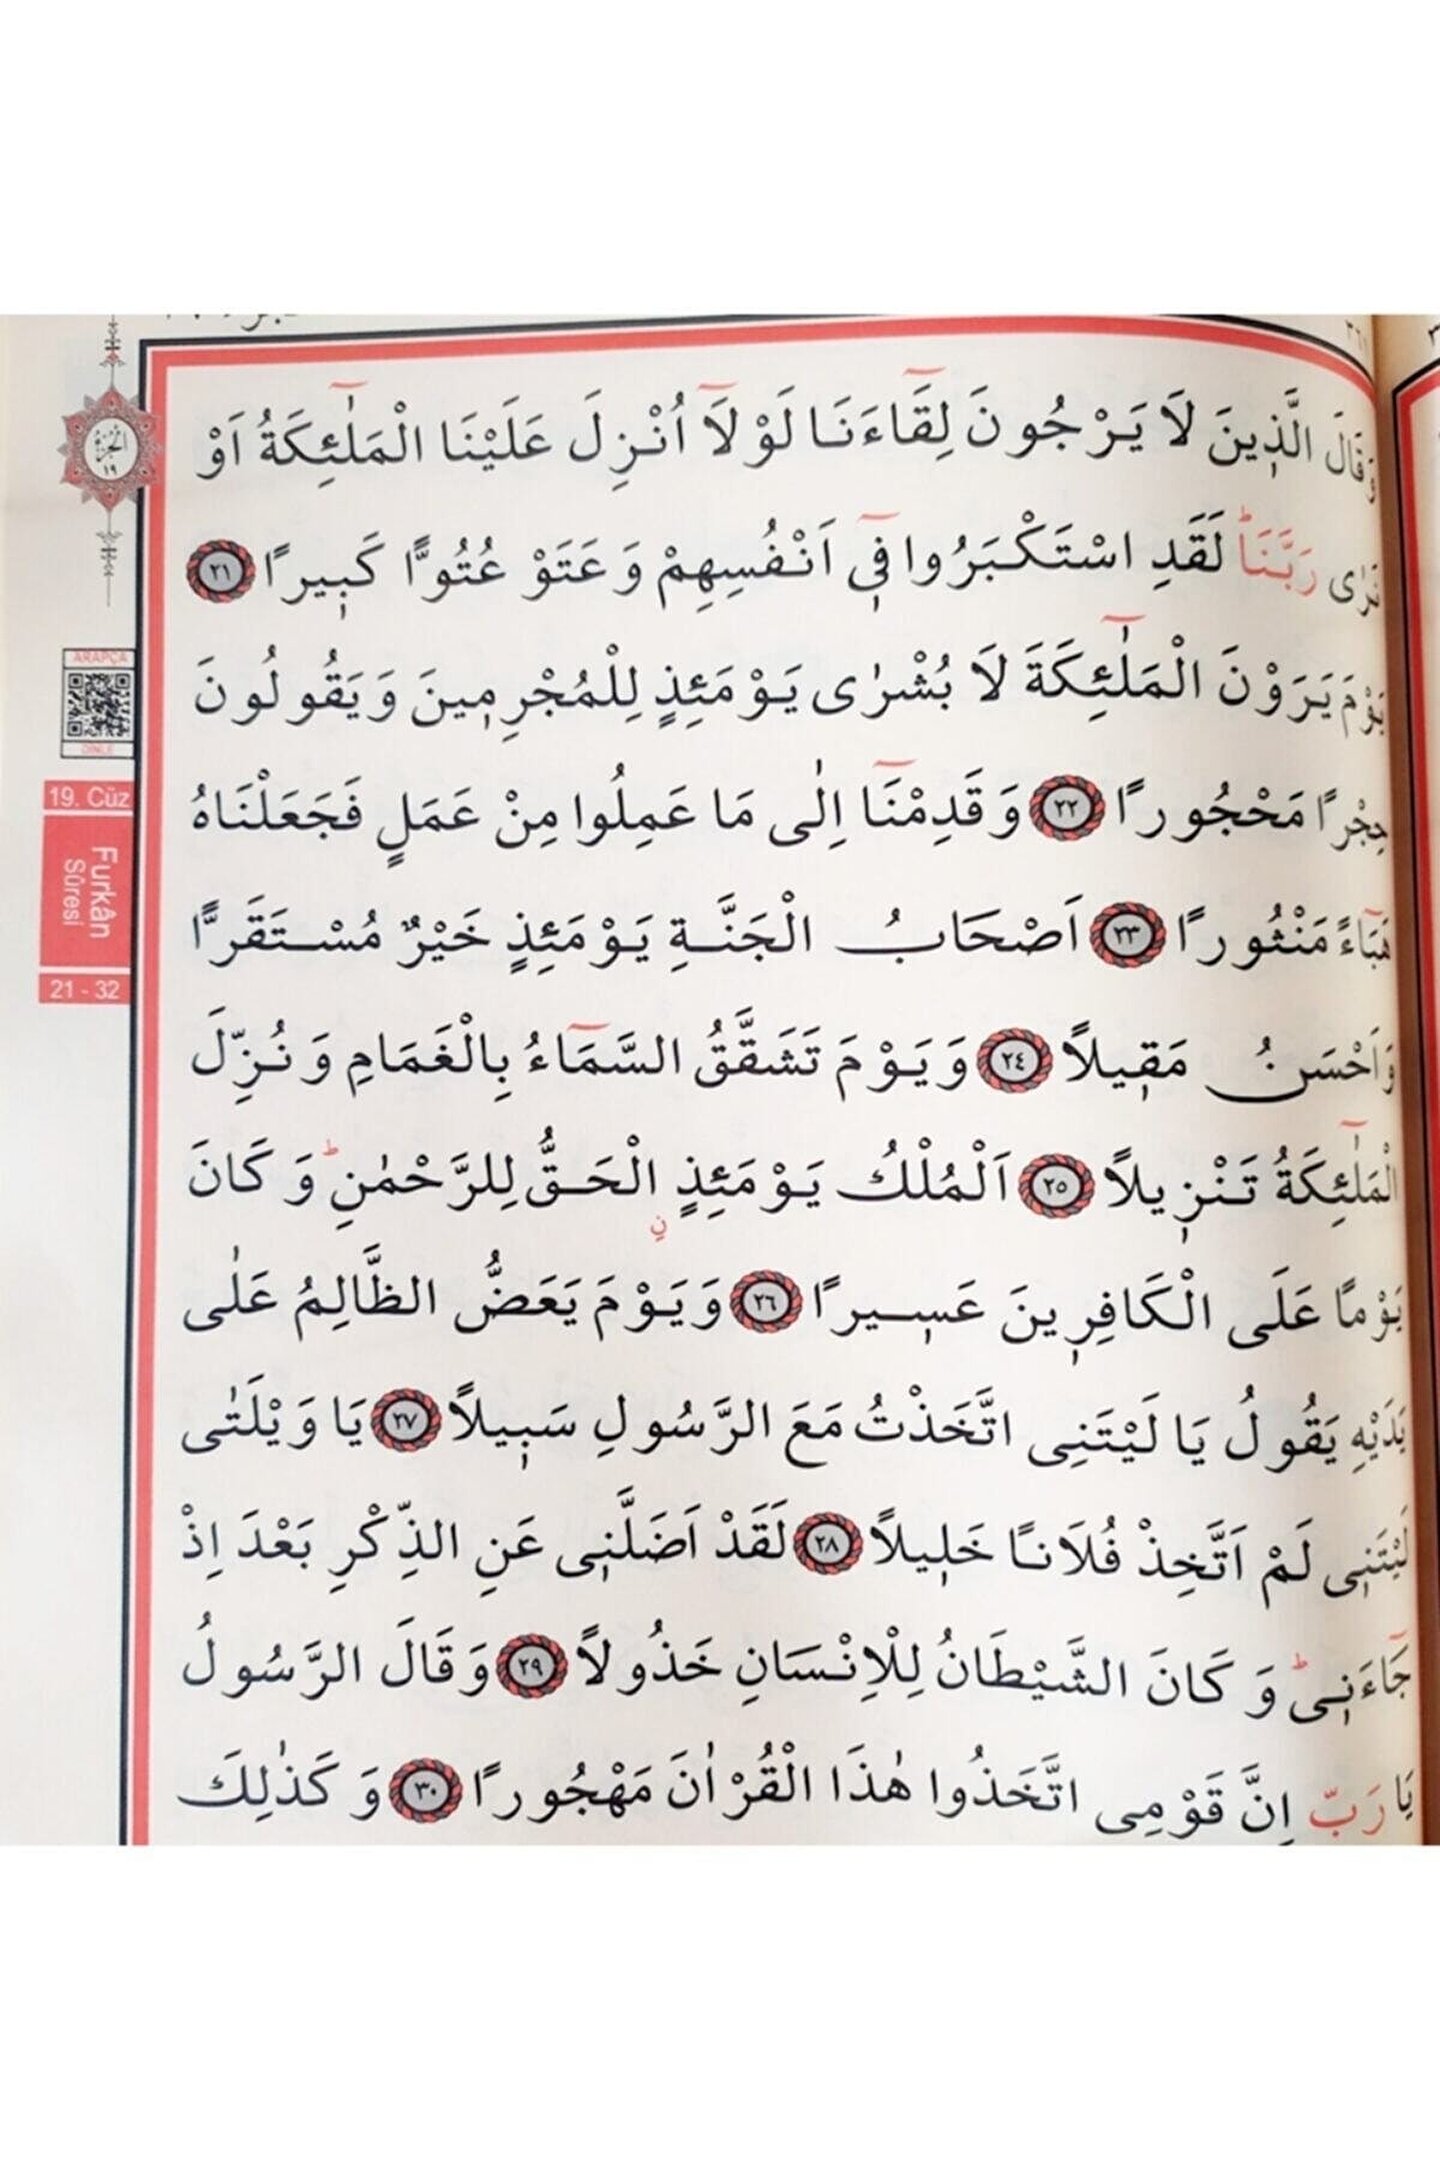 وَقَالَ الَّذ۪ينَ لَا يَرْجُونَ لِقَٓاءَنَا لَوْلَٓا اُنْزِلَ عَلَيْنَا الْمَلٰٓئِكَةُ اَوْ
نَرٰى رَبَّنَاۜ لَقَدِ اسْتَكْبَرُوا ف۪ٓي اَنْفُسِهِمْ وَعَتَوْ عُتُوًّا كَب۪يرًا ٢١
يَوْمَ يَرَوْنَ الْمَلٰٓئِكَةَ لَا بُشْرٰى يَوْمَئِذٍ لِلْمُجْرِم۪ينَ وَيَقُولُونَ
حِجْرًا مَحْجُورًا ٢٢ وَقَدِمْنَٓا اِلٰى مَا عَمِلُوا مِنْ عَمَلٍ فَجَعَلْنَاهُ
هَبَٓاءً مَنْثُورًا ٢٣ اَصْحَابُ الْجَنَّةِ يَوْمَئِذٍ خَيْرٌ مُسْتَقَرًّا
وَاَحْسَنُ مَق۪يلاً ٢٤ وَيَوْمَ تَشَقَّقُ السَّمَٓاءُ بِالْغَمَامِ وَنُزِّلَ
الْمَلٰٓئِكَةُ تَنْز۪يلاً ٢٥ اَلْمُلْكُ يَوْمَئِذٍ الْحَقُّ لِلرَّحْمٰنِۜ وَكَانَ
يَوْمًا عَلَى الْكَافِر۪ينَ عَس۪يرًا ٢٦ وَيَوْمَ يَعَضُّ الظَّالِمُ عَلٰى
يَدَيْهِ يَقُولُ يَا لَيْتَنِى اتَّخَذْتُ مَعَ الرَّسُولِ سَب۪يلاً ٢٧ يَا وَيْلَتٰى
لَيْتَن۪ى لَمْ اَتَّخِذْ فُلَانًا خَل۪يلاً ٢٨ لَقَدْ اَضَلَّن۪ى عَنِ الذِّكْرِ بَعْدَ اِذْ
جَٓاءَن۪ىۜ وَكَانَ الشَّيْطَانُ لِلْاِنْسَانِ خَذُولاً ٢٩ وَقَالَ الرَّسُولُ
يَا رَبِّ اِنَّ قَوْمِى اتَّخَذُوا هٰذَا الْقُرْاٰنَ مَهْجُورًا ٣٠ وَكَذٰلِكَ
الْجُزْءُ
١٩
ARAPÇA
DİNLE
19. Cüz
Furkân
Sûresi
21 - 32